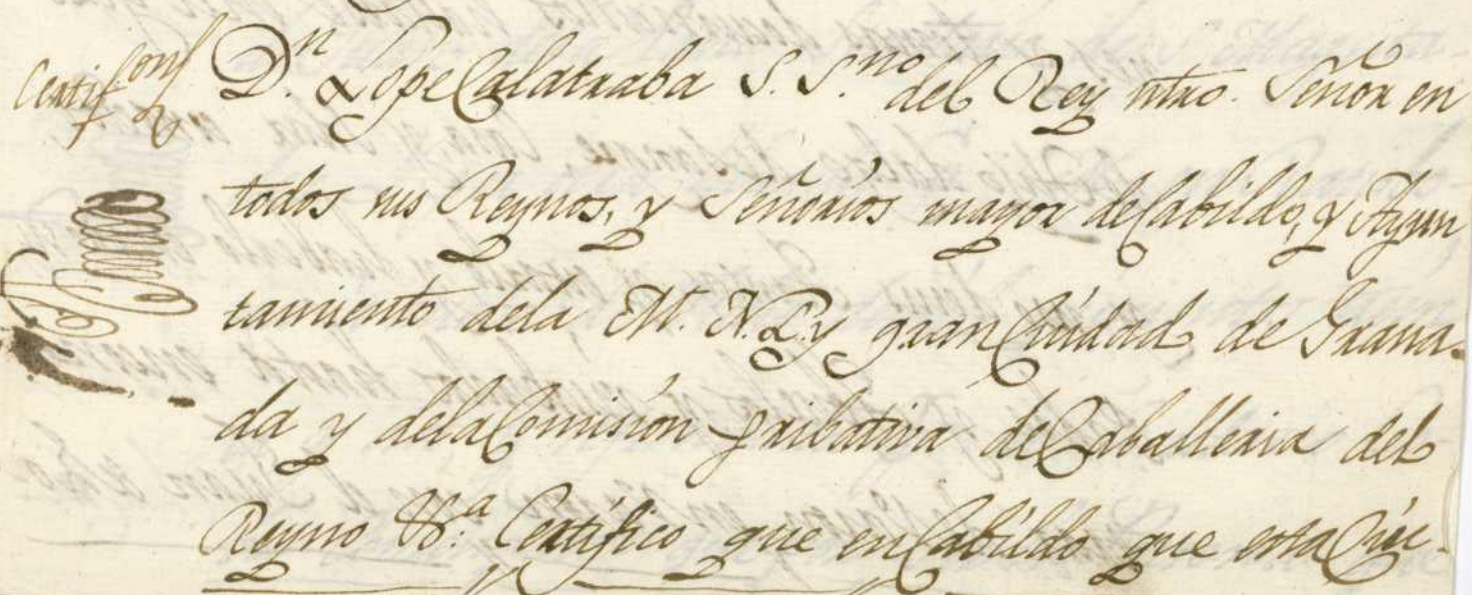 Certif.on
D.n Lope Calatraba S. S.no del Rey ntro. Señor en
todos sus Reynos, y Señorios mayor de Cabildo, y Ayun
tamiento dela M. N. L. y gran Ciudad de Grana-
da y dela Comision pribativa de Caballeria del
Reyno &.a Certifico que en Cabildo que esta Ciu-